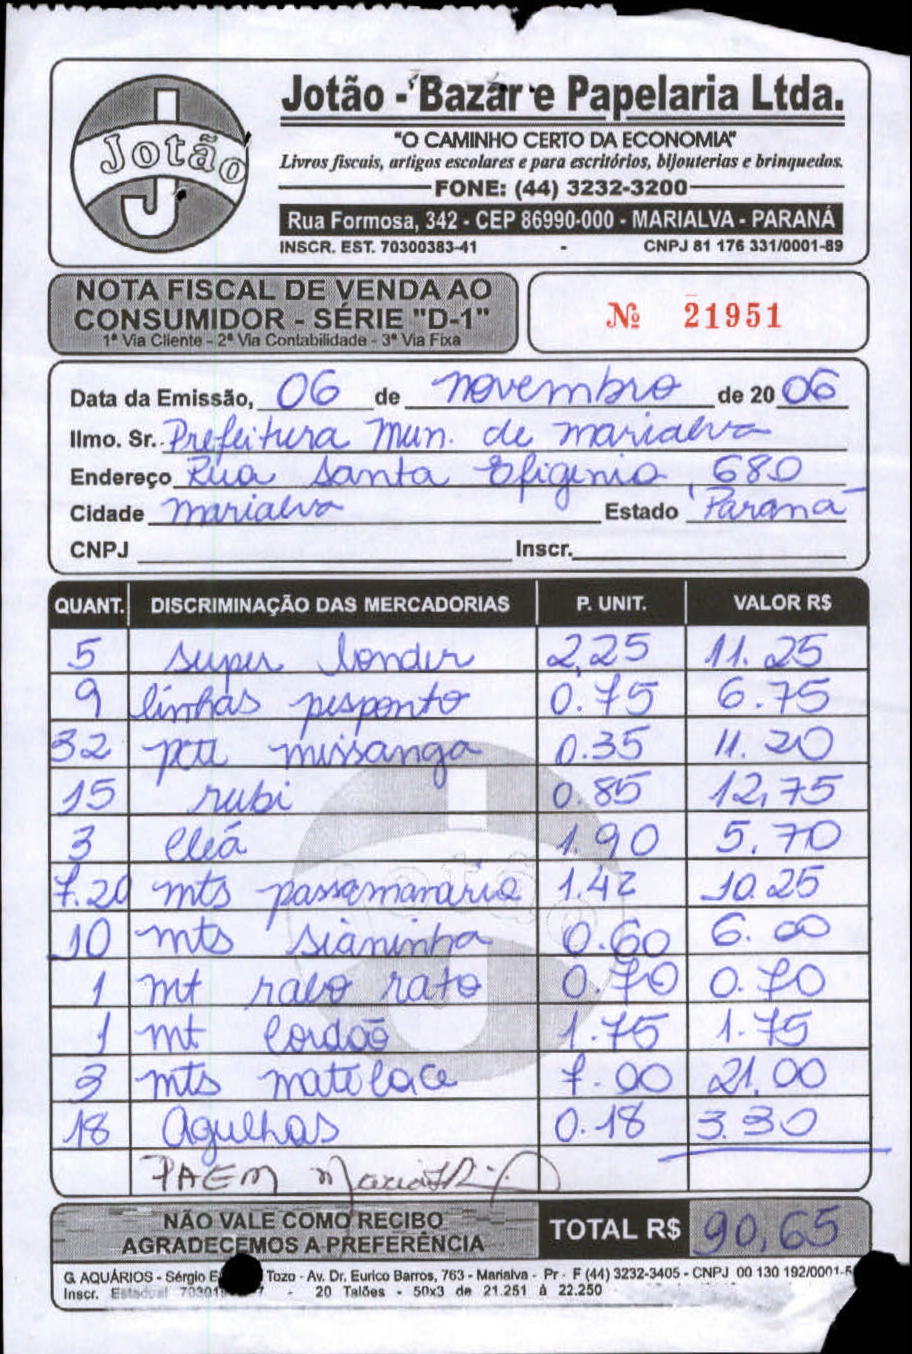 Jotão
Jotão - Bazar e Papelaria Ltda.
"O CAMINHO CERTO DA ECONOMIA"
Livros fiscais, artigos escolares e para escritórios, bijouterias e brinquedos.
FONE: (44) 3232-3200
Rua Formosa, 342 - CEP 86990-000 - MARIALVA - PARANÁ
INSCR. EST. 70300383-41 - CNPJ 81 176 331/0001-89
NOTA FISCAL DE VENDA AO
CONSUMIDOR - SÉRIE "D-1"
1ª Via Cliente - 2ª Via Contabilidade - 3ª Via Fixa
Nº 21951
Data da Emissão, 06 de novembro de 20 06
Ilmo. Sr. Prefeitura Mun. de marialva
Endereço Rua Santa Efigenia, 680
Cidade marialva Estado Paraná
CNPJ Inscr.
QUANT. DISCRIMINAÇÃO DAS MERCADORIAS P. UNIT. VALOR R$
5 super bonder 2,25 11.25
9 linhas pesponto 0.75 6.75
32 pct missanga 0.35 11.20
15 rubi 0.85 12,75
3 cléa 1.90 5.70
7.20 mts passamanaria 1.42 10.25
10 mts sianinha 0.60 6.00
1 mt rabo rato 0.70 0.70
1 mt cordão 1.75 1.75
3 mts matelace 7.00 21,00
18 Agulhas 0.18 3.30
PAEM
NÃO VALE COMO RECIBO
AGRADECEMOS A PREFERÊNCIA
TOTAL R$ 90,65
G. AQUÁRIOS - Sérgio Tozo - Av. Dr. Eurico Barros, 763 - Marialva - Pr - F (44) 3232-3405 - CNPJ 00 130 192/0001-
Inscr. Estadual - 20 Talões - 50x3 de 21.251 à 22.250